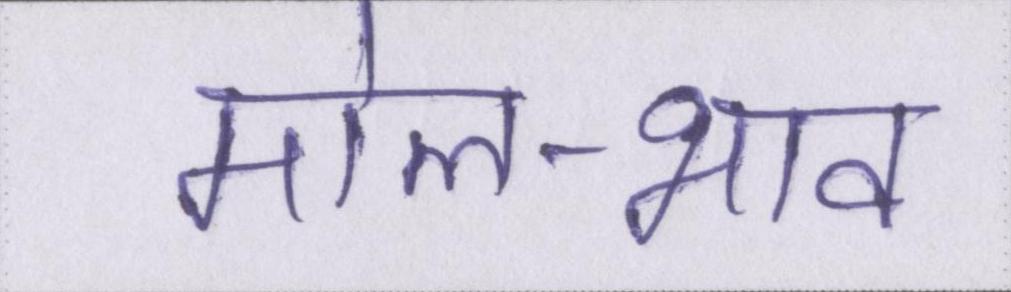 मोल-भाव